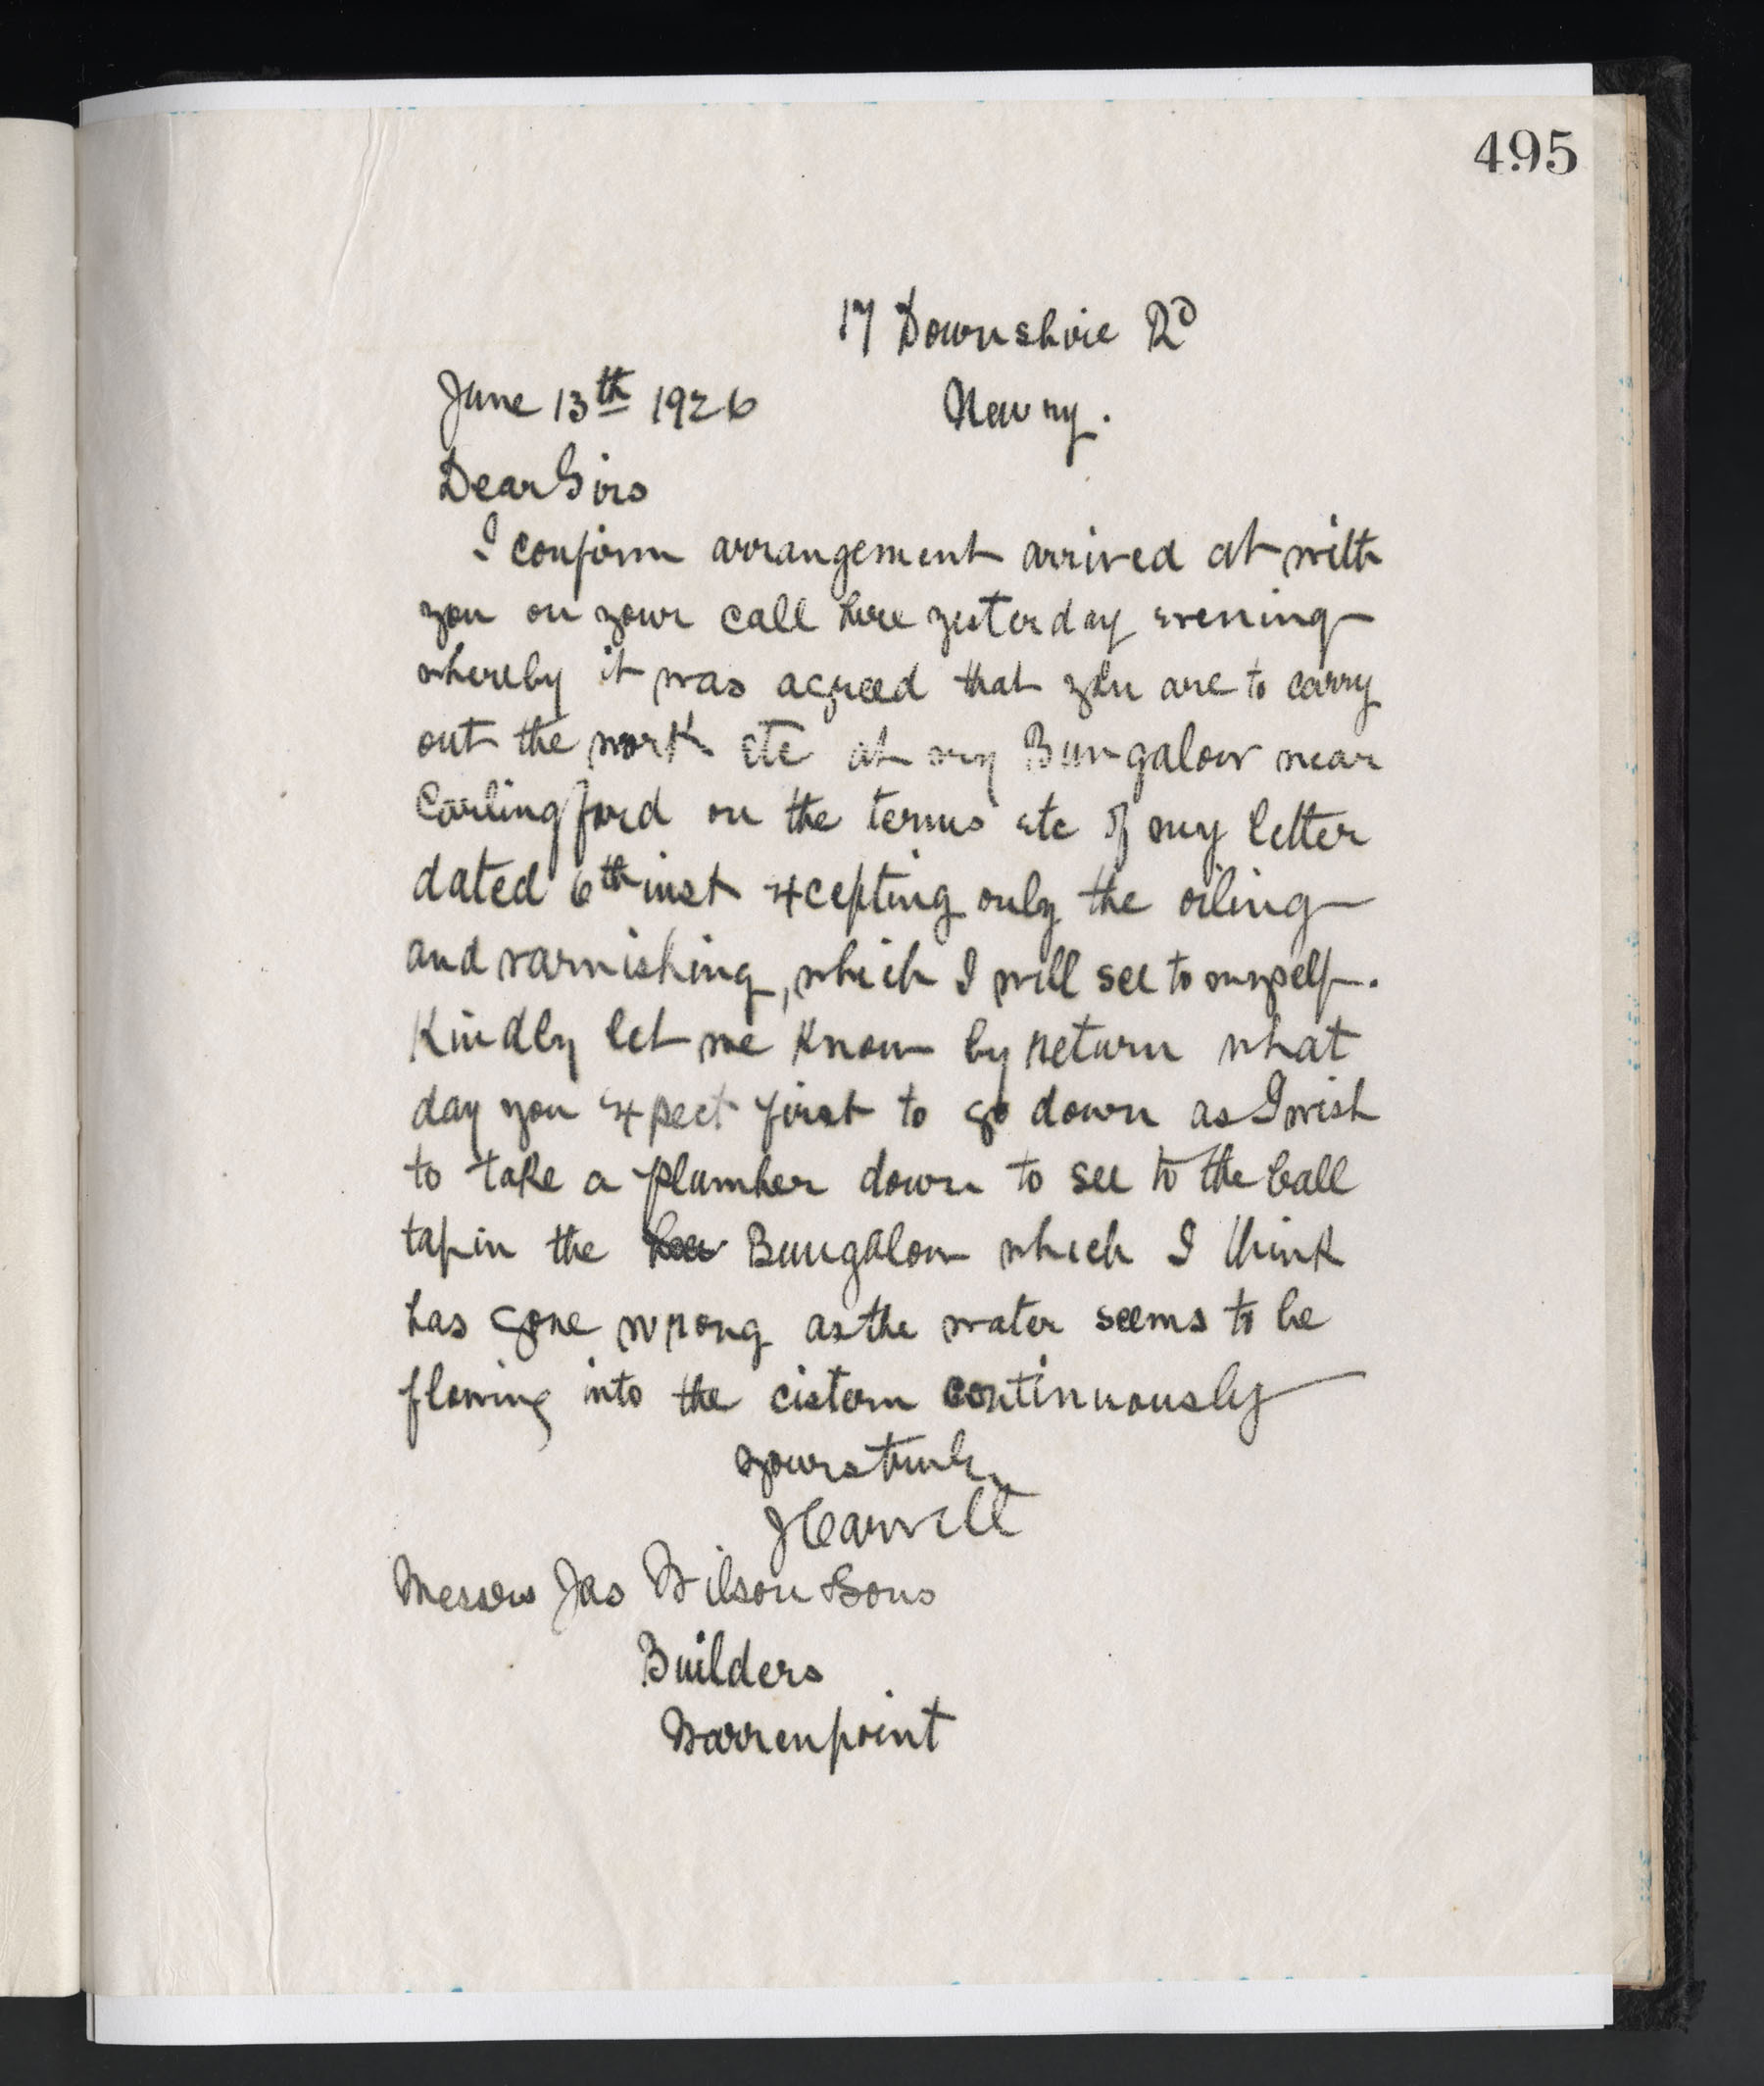 495
17 Downshire Rd
June 13th 1926 Newry.
Dear Sirs
I confirm arrangement arrived at with
you on your call here yesterday evening
whereby it was agreed that you are to carry
out the work etc at my Bungalow near
Carlingford on the terms etc of my letter
dated 6th inst excepting only the oiling
and varnishing, which I will see to myself.
Kindly let me know by return what
day you expect first to go down as I wish
to take a plumber down to see to the ball
tap in the Bungalow which I think
has gone wrong as the water seems to be
flowing into the cistern continuously
yours truly
J Carvill
Messrs Jas Wilson & Sons
Builders
Warrenpoint